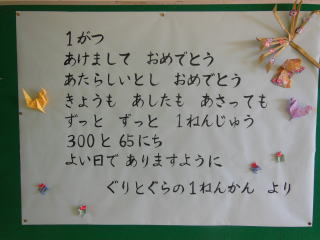 1がつ
あけまして　おめでとう
あたらしいとし　おめでとう
きょうも　あしたも　あさっても
ずっと　ずっと　1ねんじゅう
300と65にち
よい日で ありますように
ぐりとぐらの1ねんかん　より